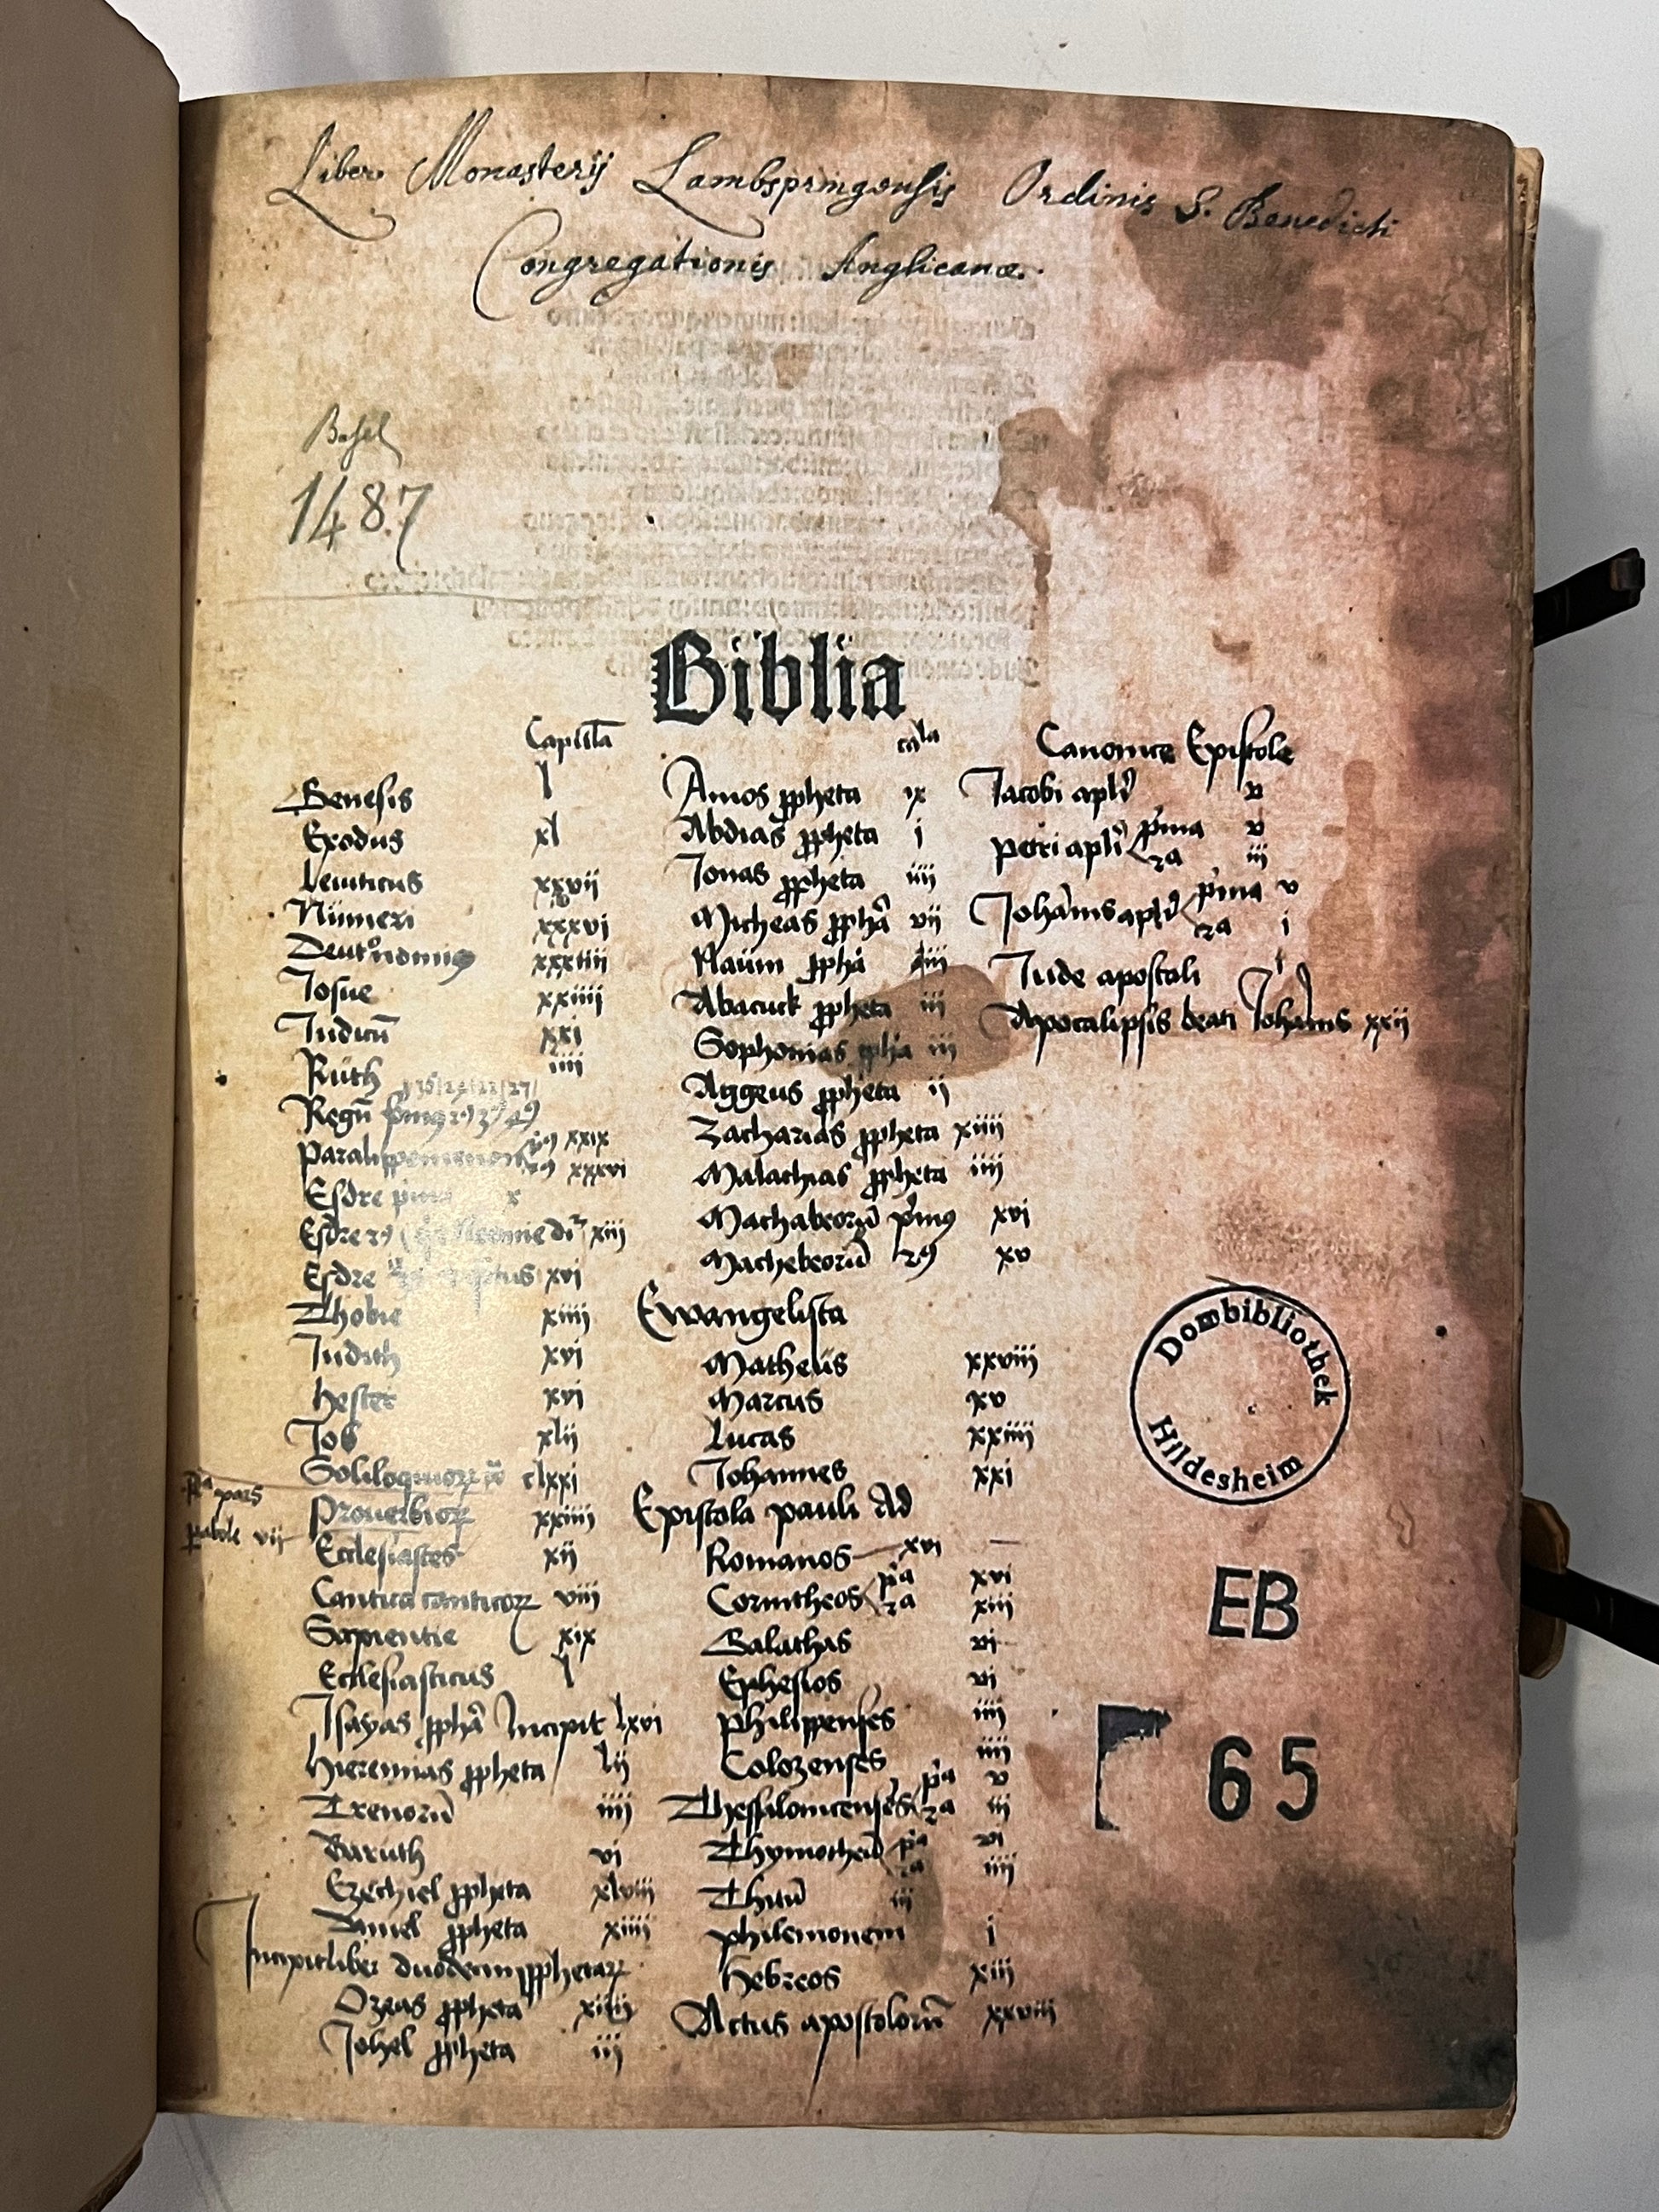 Liber Monasterij Lambspringensis Ordinis S. Benedicti
Congregationis Anglicanæ.
Basel
1487
Biblia
Capitla
Genesis l
Exodus xl
Leuiticus xxvii
Numeri xxxvi
Deutronomius xxxiiii
Iosue xxiiii
Iudicū xxi
Ruth iiii
Regū
xxix
xxxvi
Esdre x
Esdre xiii
Esdre xvi
Thobie xiiii
Iudith xvi
Hester xvi
Iob xlii
Soliloquiorꝝ clxxi
pars
vii
Prouerbiorꝝ xxiiii
Ecclesiastes xii
Cantica canticorꝝ viii
Sapientie xix
Ecclesiasticus l
Isayas ꝓphā Incipit lxvi
Hieremias ꝓpheta lii
Trenorū iiii
Baruth vi
Ezechiel ꝓpheta xlviii
Daniel ꝓpheta xiiii
Incipit liber duodecim ꝓphetarꝝ
Ozeas ꝓpheta xiiii
Johel ꝓpheta iii
cala
Amos ꝓpheta ix
Abdias ꝓpheta i
Jonas ꝓpheta iiii
Micheas ꝓphā vii
Naum ꝓphā iii
Abacuck ꝓpheta iii
Sophonias ꝓphā iii
Aggeus ꝓpheta ii
Zacharias ꝓpheta xiiii
Malachias ꝓpheta iiii
Machabeorū pimus xvi
Machebeorū xv
Ewangelista
Matheus xxviii
Marcus xv
Lucas xxiiii
Johannes xxi
Epistola pauli Ad
Romanos xvi
Corintheos pa xvi
2a xiii
Galathas vi
Ephesios vi
Philippenses iiii
Colozenses iiii
Thessalonicenses pa v
2a iii
Thymotheū pa vi
2a iiii
Thitū iii
philemonem i
Hebreos xiii
Actus apostolorū xxviii
Canonice Epistole
Jacobi apli v
Petri apli pima v
2a iii
Johannis apli pima v
2a i
Jude apostoli i
Apocalipsis beati Johannis xxii
Dombibliothek
Hildesheim
EB
65